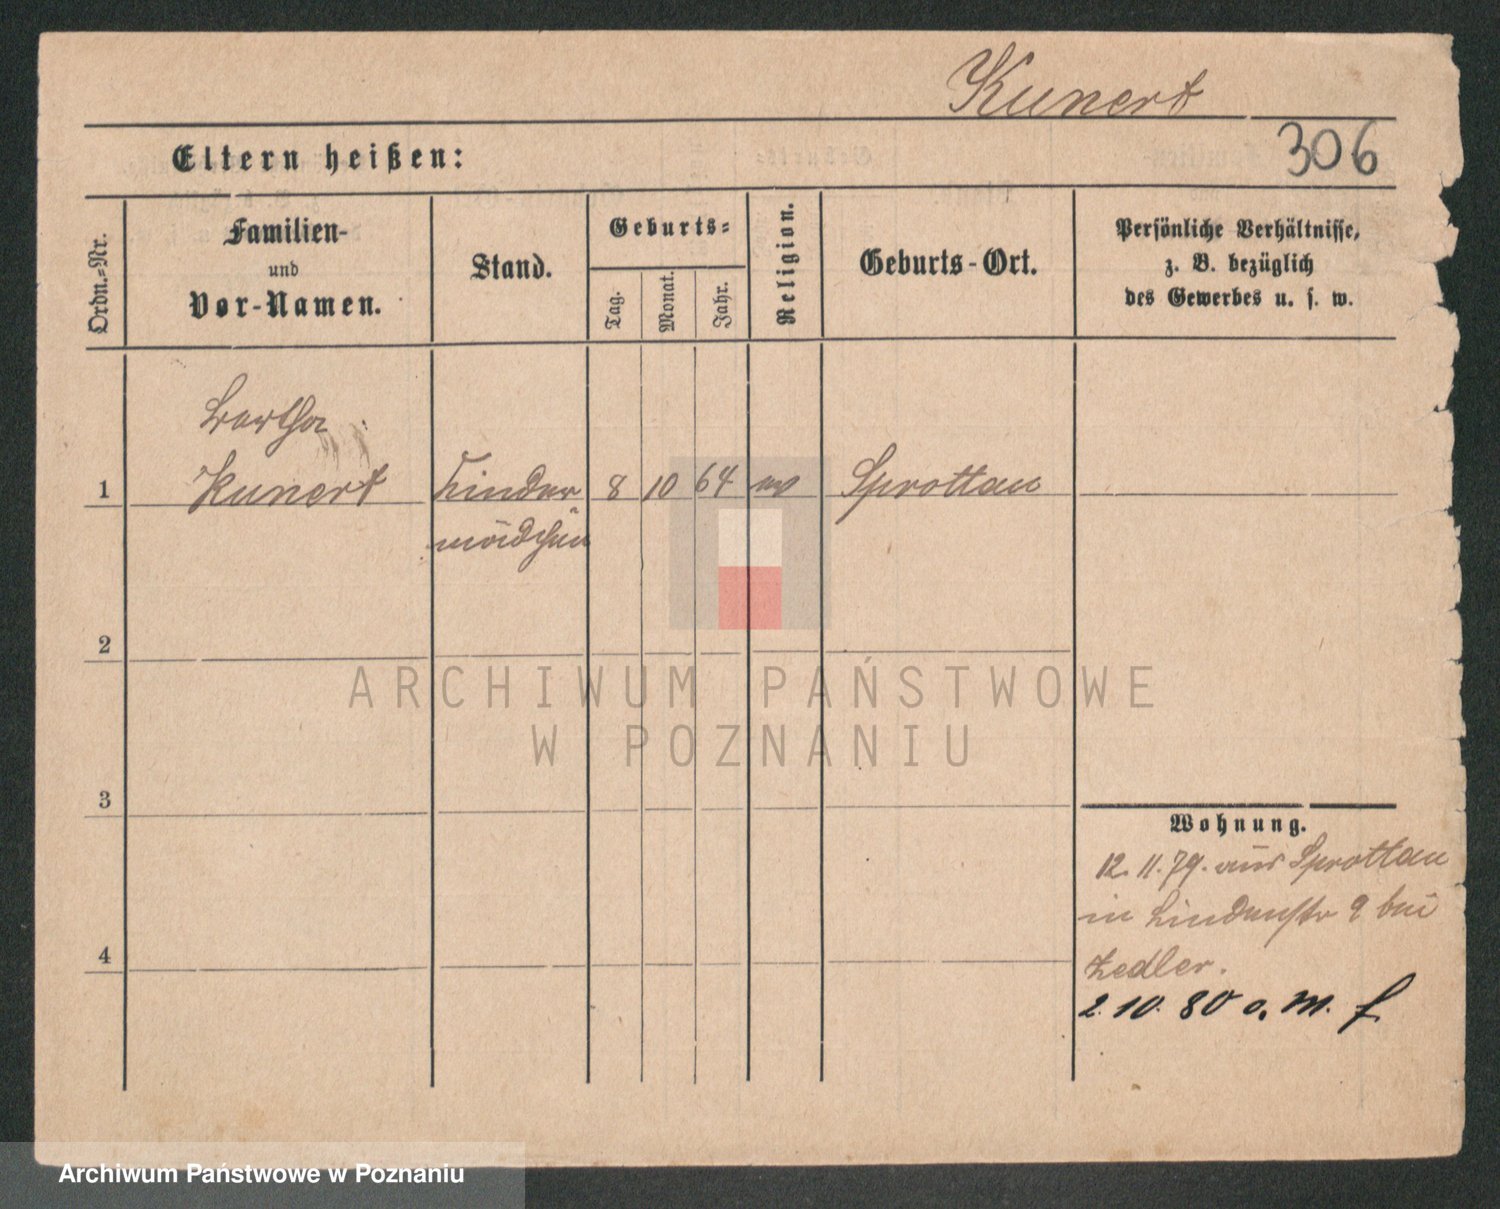 Kunert
306
Eltern heißen:
Ordn.=Nr.
Familien-
und
Vor-Namen.
Stand.
Geburts=
Tag.
Monat.
Jahr.
Religion.
Geburts-Ort.
Persönliche Verhältnisse,
z. B. bezüglich
des Gewerbes u. s. w.
Bertha
1 Kunert Kinder 8 10 64 ev Sprottau
mädchen
2
3
4
Wohnung.
12. 11. 79. aus Sprottau
in Lindenstr 9 bei
Zedler.
2. 10. 80 o. M. f
ARCHIWUM PAŃSTWOWE
W POZNANIU
Archiwum Państwowe w Poznaniu